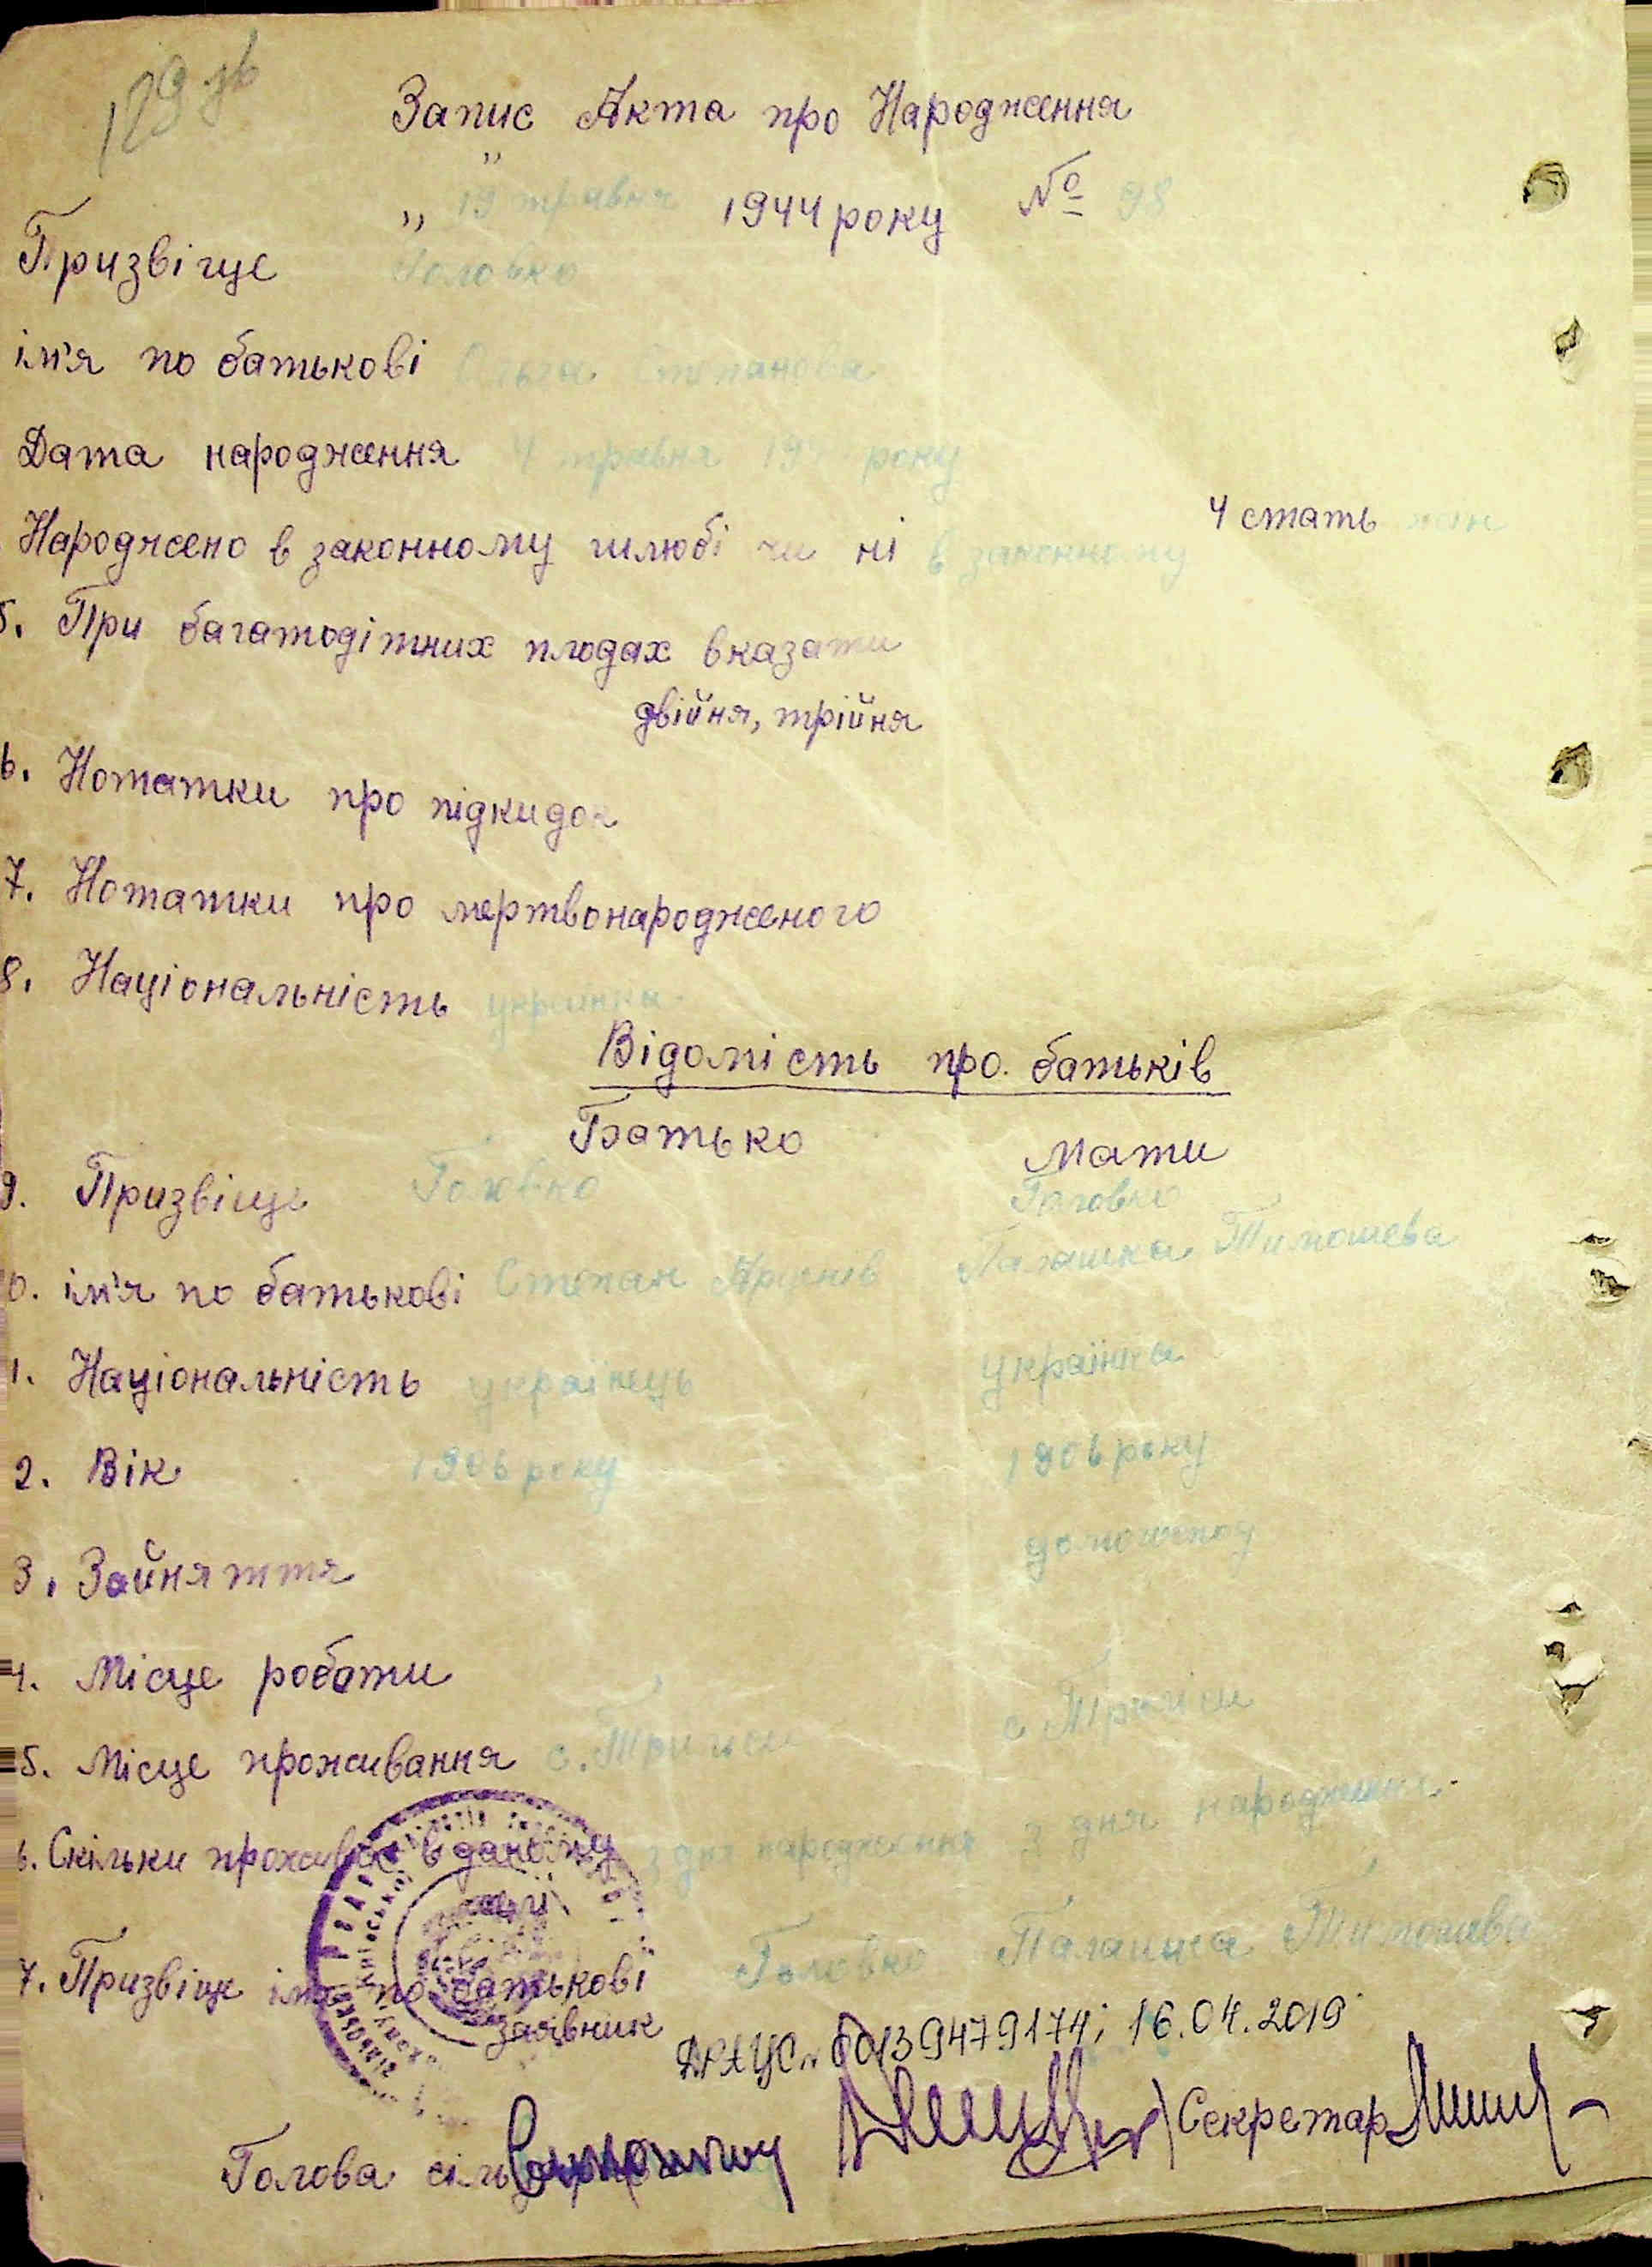 129 зв
Запис Акта про Народження
" 19 травня 1944 року № 98
Призвіще Головко
ім'я по батькові Ольга Степанова
Дата народження 4 травня 194 року
4 стать жін
Народжено в законному шлюбі чи ні в законному
5. При багатодітних плодах вказати
двійня, трійня
6. Нотатки про підкидок
7. Нотатки про мертвонародженого
8. Національність українка
Відомість про батьків
Батько Мати
9. Призвіще Головко Головко
0. ім'я по батькові Степан Палашка Тимошева
1. Національність українець українка
2. Вік 1906 року 1906 року
3. Зайняття
4. Місце роботи
5. Місце проживання с. с
6. Скільки проживає в даному з дня народження з дня народження
7. Призвіще ім'я по батькові Головко Палашка Тимошева
заявник
ДРАЦС 00139479174; 16.04.2019
Голова Секретар